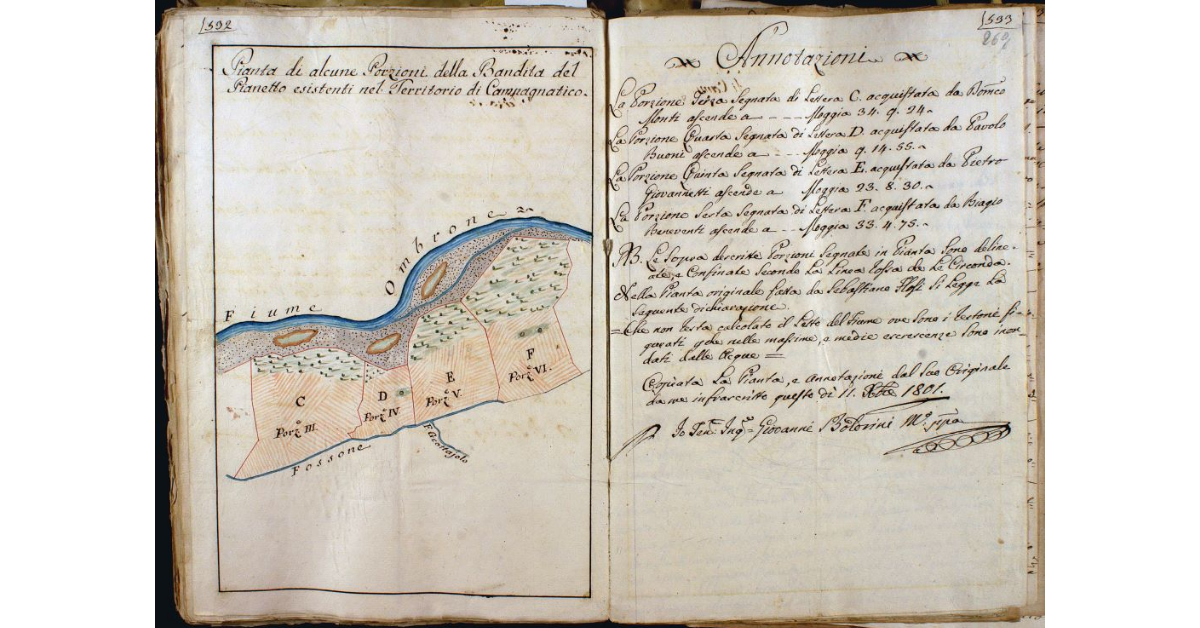 1592
Pianta di alcune Porzioni della Bandita del
Pianetto esistenti nel Territorio di Campagnatico.
Fiume Ombrone
C
Porz.e III.
D
Porz.e IV
E
Porz.e V.
F
Porz.e VI.
Fossone
1593
269
Annotazioni
La Porzione Terza Segnata di Lettera C. acquistata da Domco
Monti ascende a - - - Moggia 34. 9. 24.
La Porzione Quarta Segnata di Lettera D. acquistata da Pavolo
Buoni ascende a - - - Moggia 9. 14. 55.
La Porzione Quinta Segnata di Lettera E. acquistata da Pietro
Giovannetti ascende a Moggia 23. 8. 30.
La Porzione Sesta Segnata di Lettera F. acquistata da Biagio
Beneventi ascende a - - - Moggia 33. 4. 75.
NB. Le Sopra descritte Porzioni Segnate in Pianta sono deline-
ate, e Confinate Secondo La Linea rossa che Le Circonda.
Nella Pianta originale fatta da Sebastiano Si Legge La
Seguente dichiarazione.
= Che non resta calcolato il Letto del Fiume ove sono i tortoni fi-
gurati che nelle massime, e medie escrescenze sono inon-
dati dalle Acque =
Copiata La Pianta, e Annotazioni dal Suo Originale
da me infrascritto questo dì 11. 1801.
Io Ten.e Ing.e Giovanni Bolorini M.o ppa